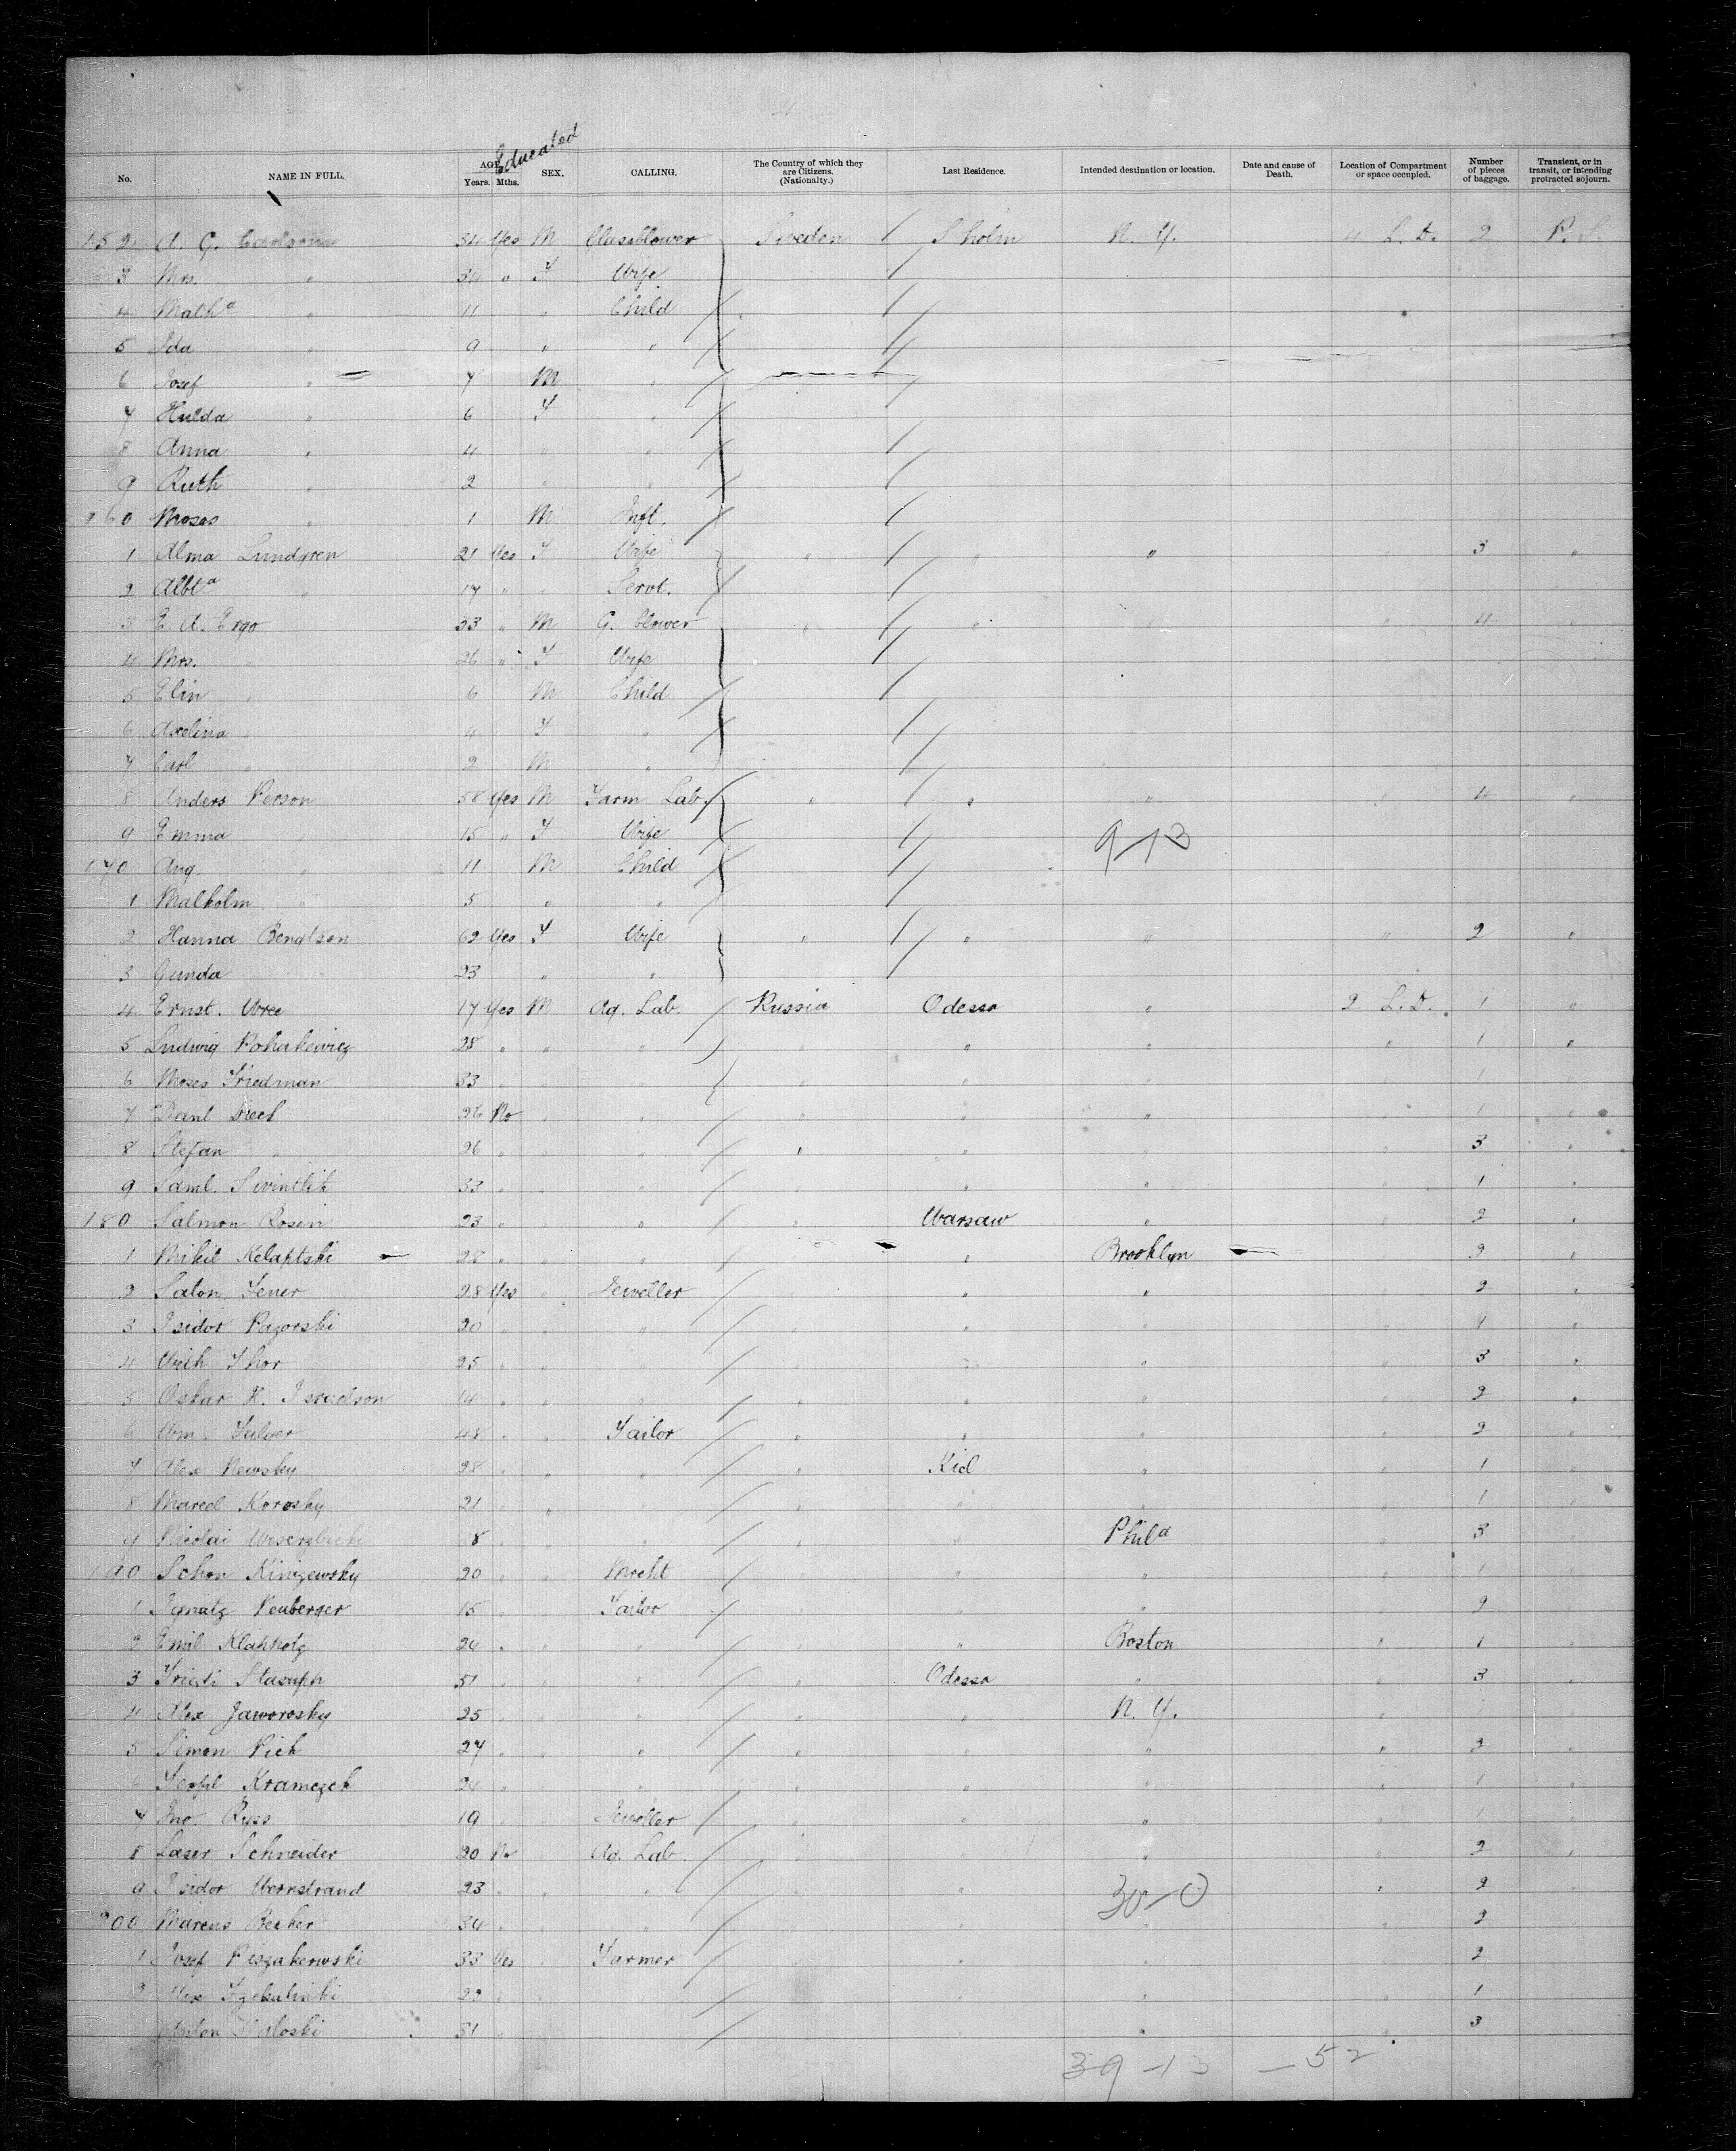 Educated
No. NAME IN FULL. AGE Years. Mths. SEX. CALLING. The Country of which they are Citizens. (Nationality.) Last Residence. Intended destination or location. Date and cause of Death. Location of Compartment or space occupied. Number of pieces of baggage. Transient, or in transit, or intending protracted sojourn.
152 A. G. Carlson 34 Yes M Glassblower Sweden S'holm N. Y. 4 L. D. 2 P. S.
3 Mrs. " 34 " F Wife
4 Matha " 11 " Child
5 Ida " 9 " "
6 Josef " 7 M "
7 Hulda " 6 F "
8 Anna " 4 " "
9 Ruth " 2 " "
160 Moses " 1 M Inft.
1 Alma Lundgren 21 Yes F Wife " " " 3 "
2 Albta " 17 " " Servt.
3 E. A. Ergo 33 " M G. blower " " " " 4 "
4 Mrs. " 26 " F Wife
5 Elin " 6 M Child
6 Axelina " 4 F "
7 Carl " 2 M "
8 Anders Person 58 Yes M Farm Lab. " " " " 4 "
9 Emma " 15 " F Wife
9-13
170 Aug. " 11 M Child
1 Malholm " 5 " "
2 Hanna Bengtson 62 Yes F Wife " " " " 2 "
3 Gunda 23 " "
4 Ernst. Wree 17 Yes M Ag. Lab. Russia Odessa " 2 L. D. 1 "
5 Ludwig Pohakewicz 28 " " " " " " " 1 "
6 Moses Friedman 33 " " " " " " " 1 "
7 Danl 26 No " " " " " " 1 "
8 Stefan " 26 " " " " " " " 3 "
9 Saml. 33 " " " " " " " 1 "
180 Salmon Rosen 23 " " " " Warsaw " " 2 "
1 Mikil Kelaptski 28 " " " " " Brooklyn 2 "
2 Salon Fener 28 Yes " Jeweller " " " 2 "
3 Isidor Pazorski 20 " " " " " " 1 "
4 25 " " " " " " " 3 "
5 Oskar H. 14 " " " " " " " 2 "
6 Wm. 48 " " Tailor " " " " 2 "
7 Alex Newsky 28 " " " " Kiel " " 1 "
8 Marcel Korosky 21 " " " " " " " 1 "
9 Nicolai 8 " " " " " Phila " 3 "
190 Schon Kinizewsky 20 " " Mrcht " " " " 1 "
1 Ignatz Neuberger 15 " " Tailor " " " " 2 "
2 Emil 24 " " " " " Boston " 1 "
3 51 " " " " Odessa " " 3 "
4 Alex Jaworosky 25 " " " " " N. Y. "
5 Simon Pick 27 " " " " " " " 2 "
6 Kramczek 24 " " " " " " " 1 "
7 Jno. Ryss 19 " " Jeweller " " " " 1 "
8 Laser Schneider 20 No " Ag. Lab. " " " " 2 "
9 Isidor Wernstrand 23 " " " " " " 2 "
30-0
200 Marcus Becker 34 " " " " " " 2
1 Josef Piszakerwski 33 Yes " Farmer " " 2
2 Alex 29 " " " 1
Anton 31 " " " 3
39-13 - 52